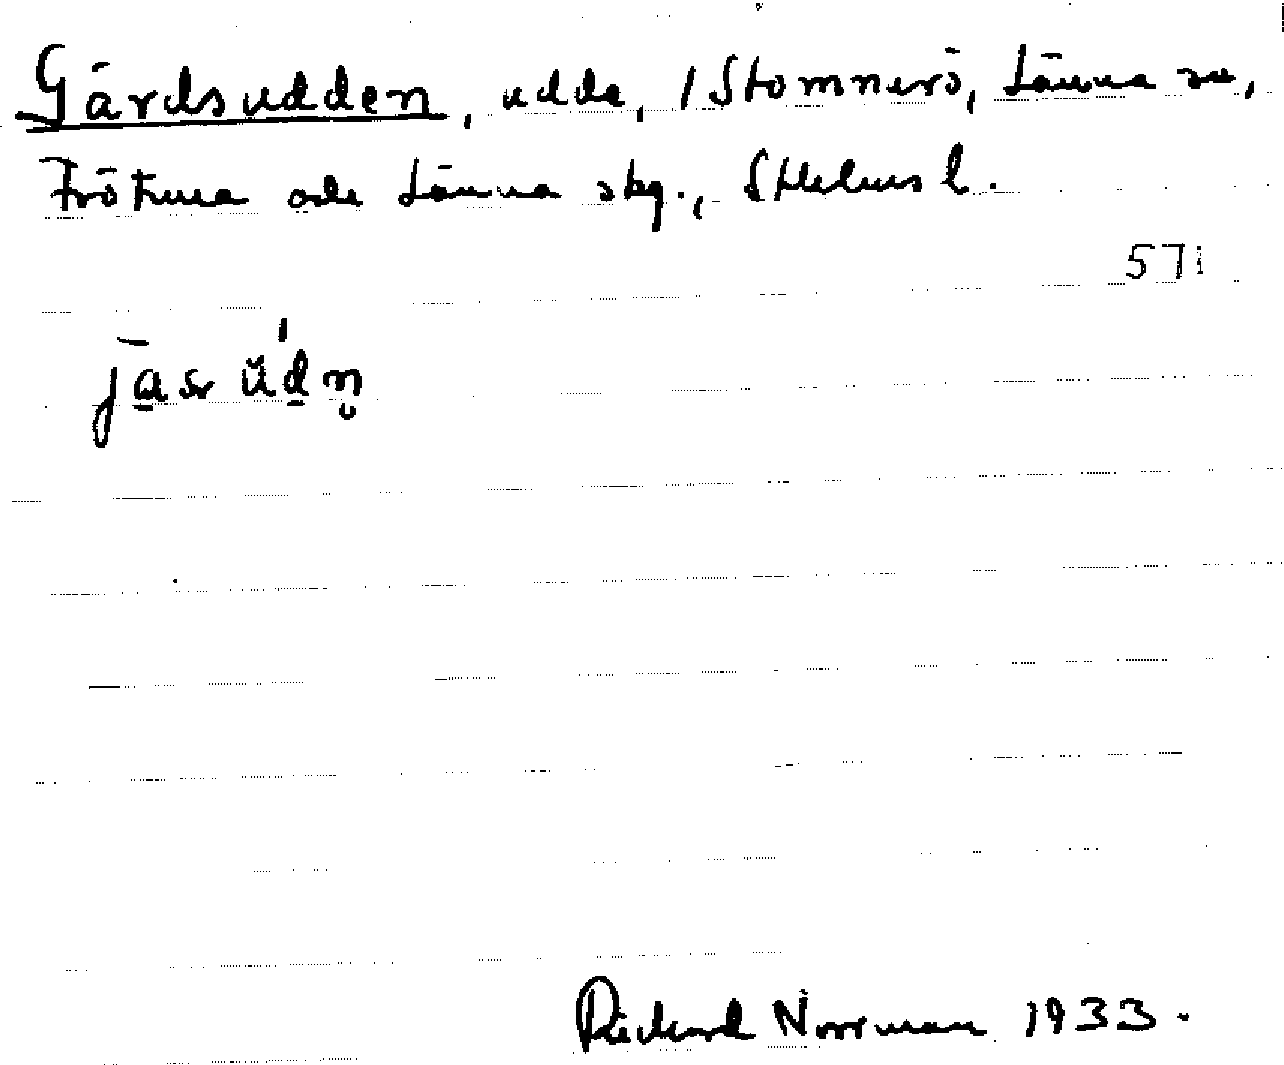 Gärdsudden, udde, / Stomnerö, Länna sn,
Frötuna och Länna skg., Sthlms l.
57i
j̄a̱sr ŭ'ḏn̥
Richard Norrman 1933.